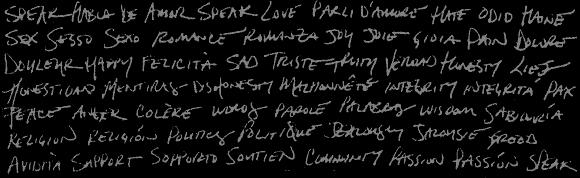 SPEAK HABLA DE AMOR SPEAK LOVE PARLI D'AMORE HATE ODIO HAINE
SEX SESSO SEXO ROMANCE ROMANZA JOY JOIE GIOIA PAIN DOLORE
DOULEUR HAPPY FELICITÀ SAD TRISTE TRUTH VERDAD HONESTY LIES
HONESTIDAD MENTIRAS DISHONESTY MALHONNÊTE INTEGRITY INTEGRITÀ PAX
PEACE ANGER COLÈRE WORDS PAROLE PALABRAS WISDOM SABIDURÍA
RELIGION RELIGIÓN POLITICS POLITIQUE JEALOUSY JALOUSIE GREED
AVIDITÀ SUPPORT SOPPORTO SOUTIEN COMMUNITY PASSION PASSIÓN SPEAK